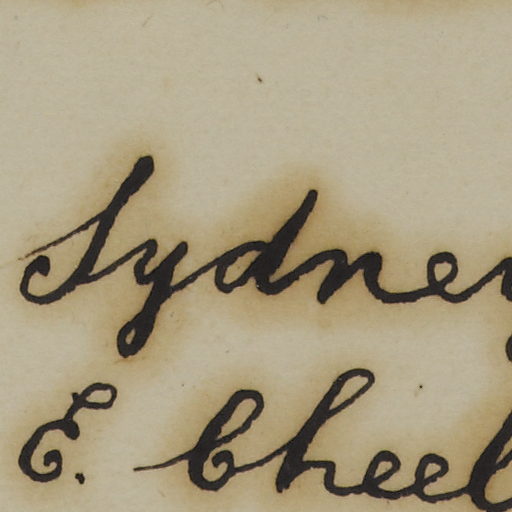 Sydney
E. Cheel